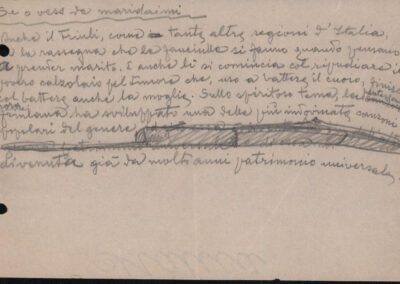 Se o vess da maridaimi
Anche il Friuli, come tante altre regioni d'Italia,
ha la rassegna che le fanciulle si fanno quando pensano
a prender marito. E anche lì si comincia col ripudiare il
povero calzolaio pel timore che, uso a battere il cuoio, finisca
col battere anche la moglie. Sullo spiritoso tema, la
friulana ha sviluppato una delle più indovinate canzoni
popolari del genere
divenuta già da molti anni patrimonio universale.